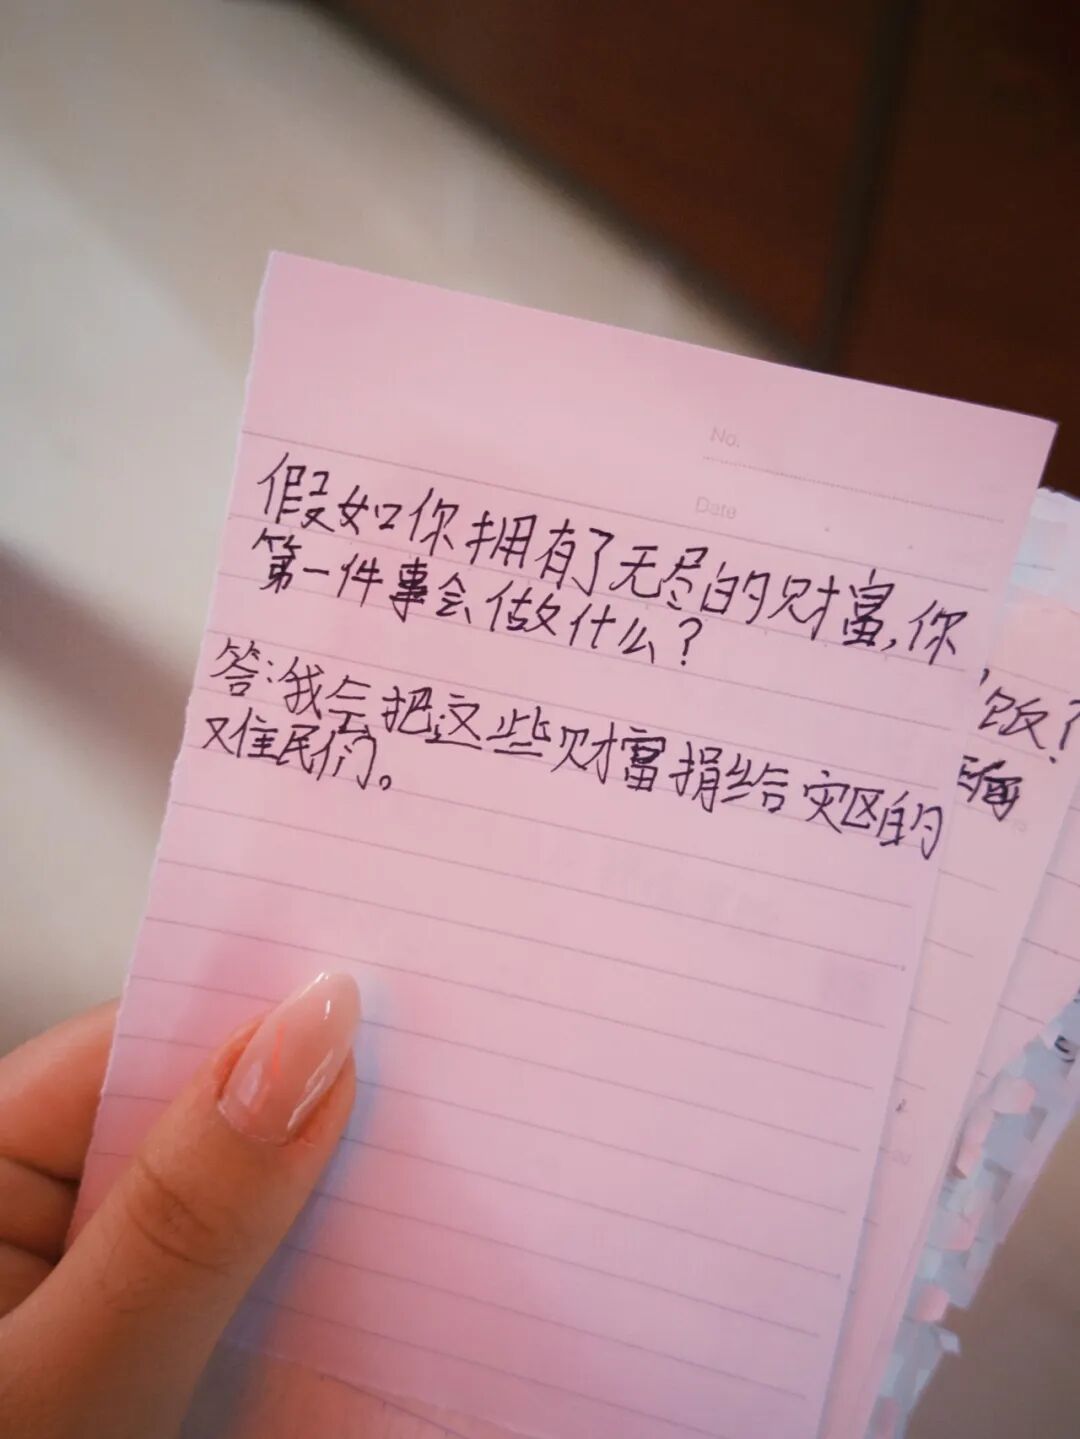 No.
Date
假如你拥有了无尽的财富,你
第一件事会做什么?
答:我会把这些财富捐给灾区的
又住民们。
饭?